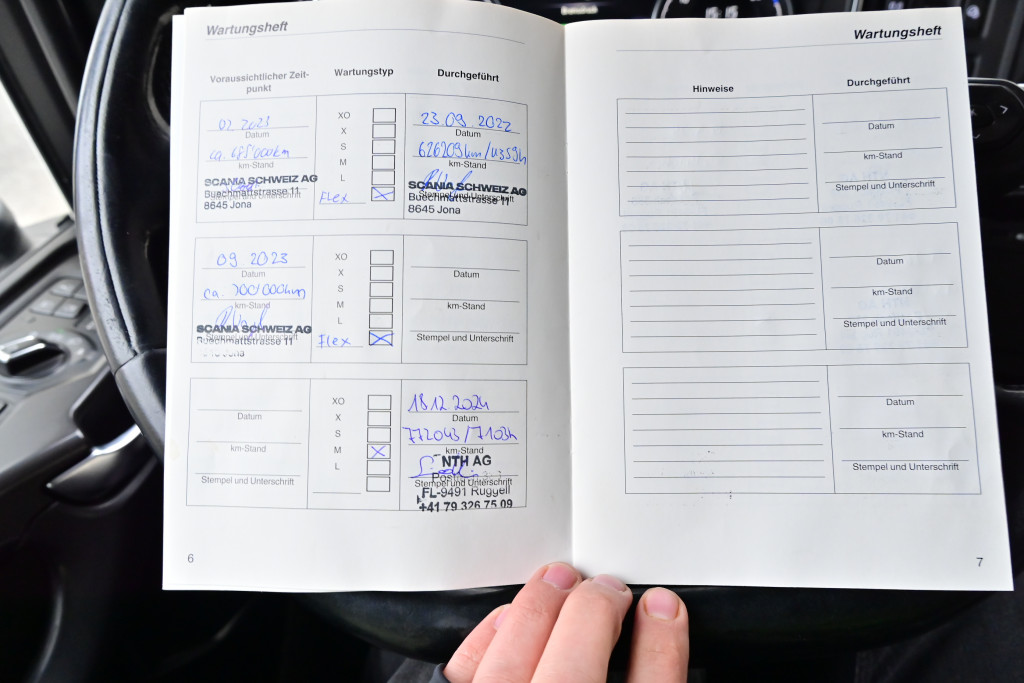 Wartungsheft
Voraussichtlicher Zeit-
punkt
Wartungstyp
Durchgeführt
02.2023
Datum
ca. 685'000km
km-Stand
SCANIA SCHWEIZ AG
Buechmattstrasse 11
Stempel und Unterschrift
8645 Jona
XO
X
S
M
L
Flex
23.09.2022
Datum
626209km/4359h
km-Stand
SCANIA SCHWEIZ AG
Stempel und Unterschrift
Buechmattstrasse 11
8645 Jona
09 2023
Datum
ca. 700'000km
km-Stand
SCANIA SCHWEIZ AG
Stempel und Unterschrift
Buechmattstrasse 11
Jona
XO
X
S
M
L
Flex
Datum
km-Stand
Stempel und Unterschrift
Datum
km-Stand
Stempel und Unterschrift
XO
X
S
M
L
18.12.2024
Datum
772043/7103h
km-Stand
NTH AG
Stempel und Unterschrift
FL-9491 Ruggell
+41 79 326 75 09
6
Wartungsheft
Hinweise
Durchgeführt
Datum
km-Stand
Stempel und Unterschrift
Datum
km-Stand
Stempel und Unterschrift
Datum
km-Stand
Stempel und Unterschrift
7